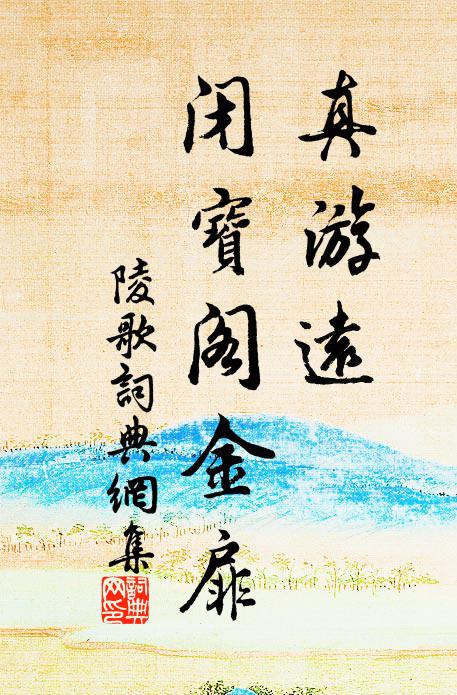 真游遠
闭寶阁金扉
陵歌詞典網集
詞典